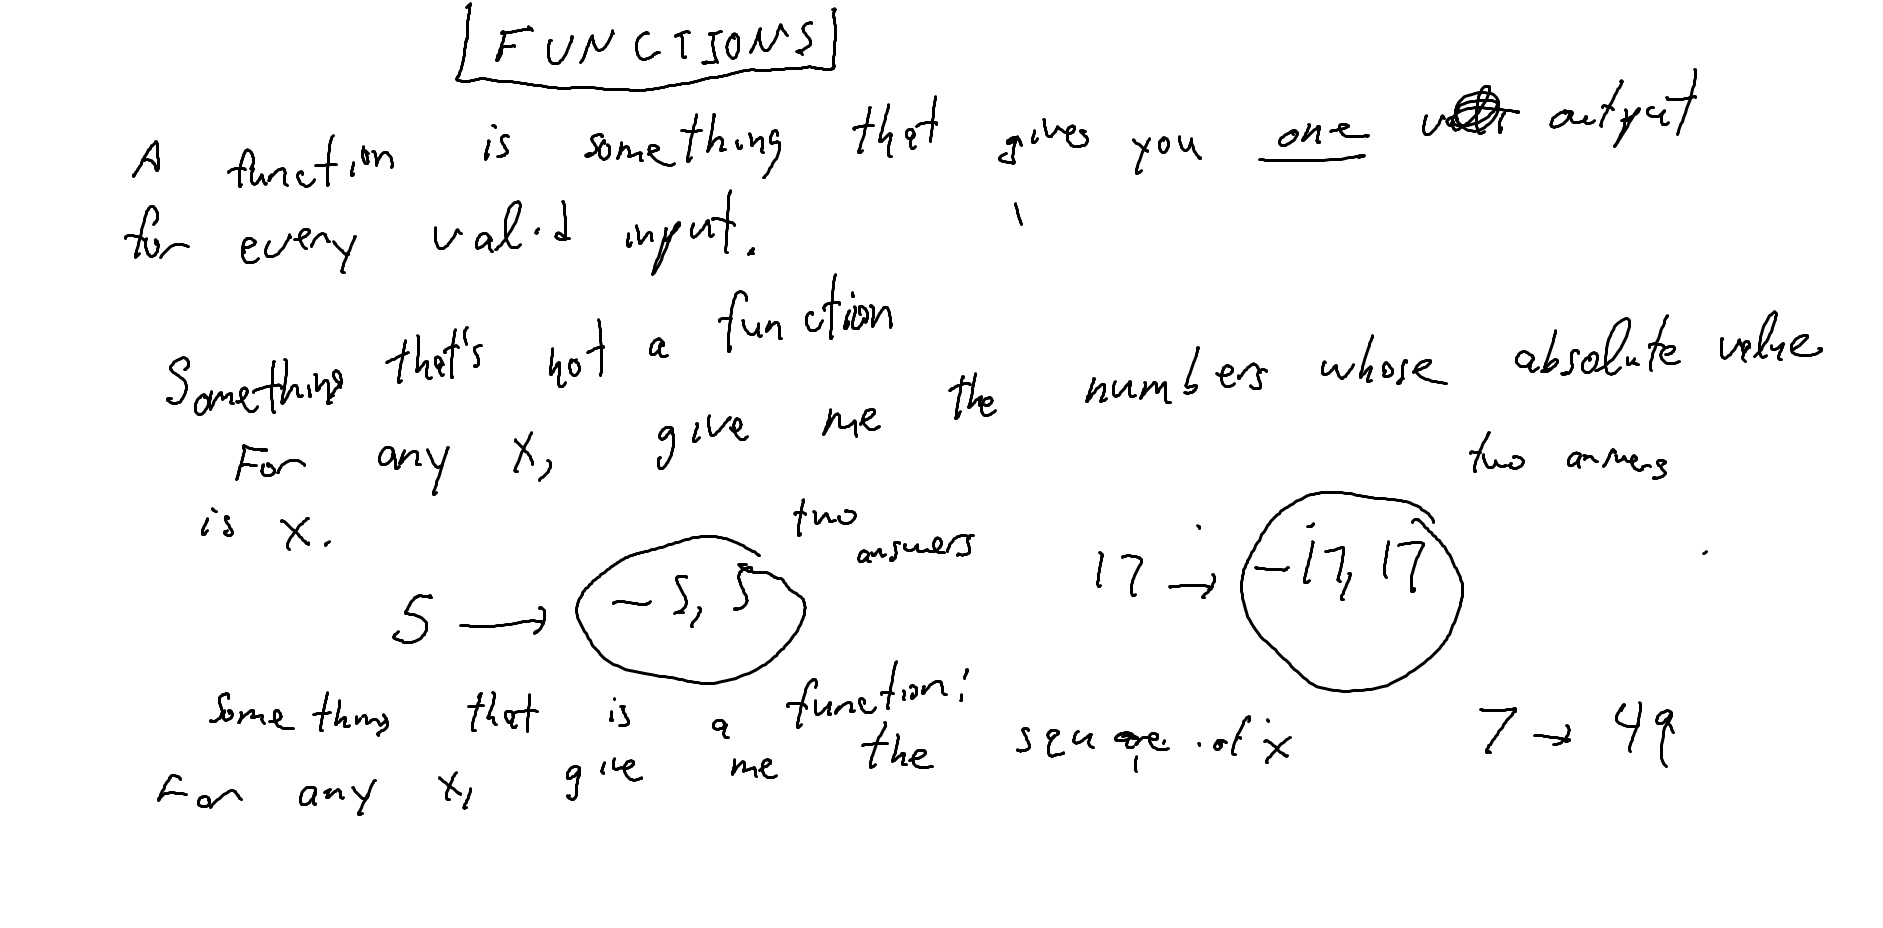 FUNCTIONS
A function is something that gives you one output
for every valid input.
Something that's not a function
For any x, give me the numbers whose absolute value
is x.
two answers
two answers
5 → -5, 5
17 → -17, 17
Something that is a function:
For any x, give me the square of x
7 → 49